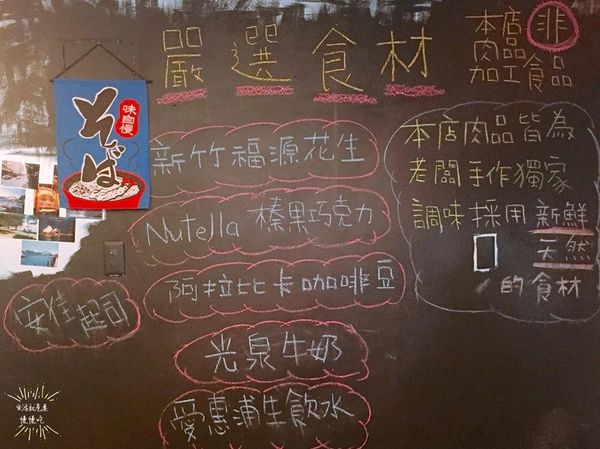 嚴選食材
本店
肉品
加工食品
非
味自慢
そば
新竹福源花生
Nutella 榛果巧克力
阿拉比卡咖啡豆
安佳起司
光泉牛奶
愛惠浦生飲水
本店肉品皆為
老闆手作獨家
調味採用新鮮
天然
的食材
慢慢吃